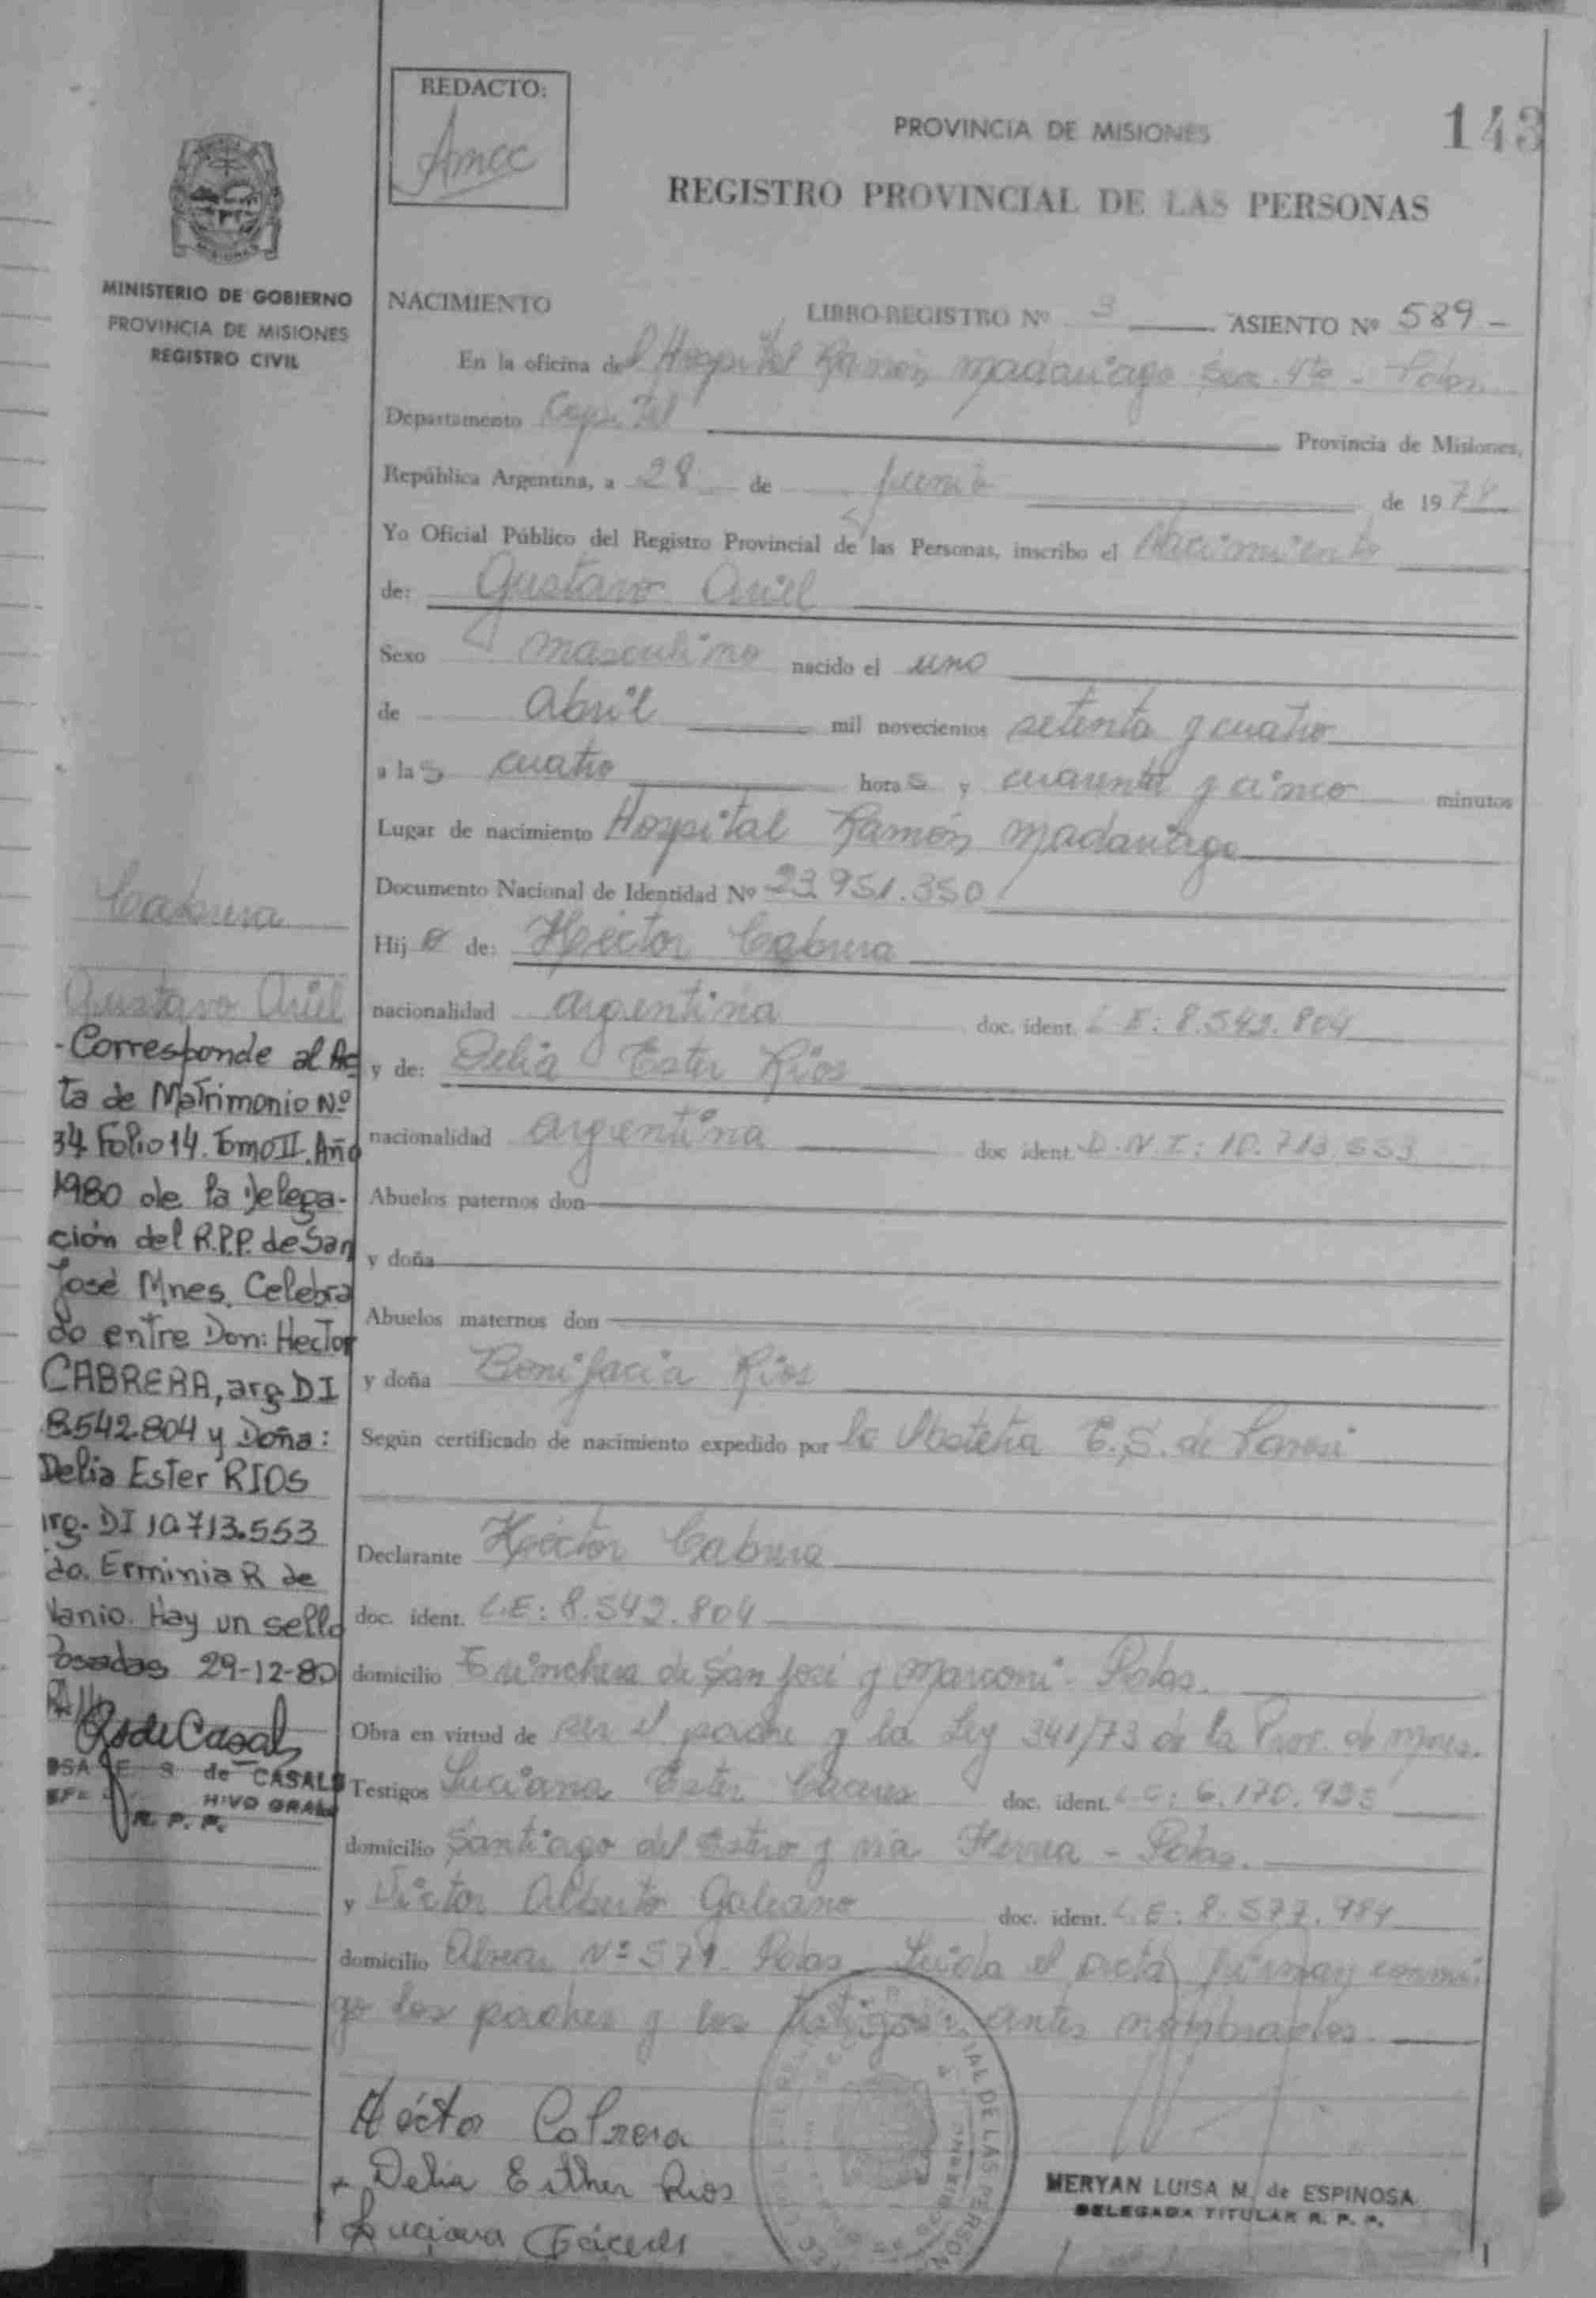 REDACTO:
PROVINCIA DE MISIONES
143
REGISTRO PROVINCIAL DE LAS PERSONAS
MINISTERIO DE GOBIERNO
PROVINCIA DE MISIONES
REGISTRO CIVIL
NACIMIENTO LIBRO-REGISTRO Nº 3 ASIENTO Nº 589 -
En la oficina del Hospital Ramón Madariaga Sec. 4ta - Pdas.
Departamento Capital Provincia de Misiones,
República Argentina, a 28 de junio de 1974
Yo Oficial Público del Registro Provincial de las Personas, inscribo el Nacimiento
de: Gustavo Ariel
Sexo masculino nacido el uno
de abril mil novecientos setenta y cuatro
a las cuatro horas y cuarenta y cinco minutos
Lugar de nacimiento Hospital Ramón Madariaga
Documento Nacional de Identidad Nº 23.951.350
Hijo de: Héctor Cabrera
nacionalidad argentina doc. ident. L.E: 8.542.804
y de: Delia Ester Rios
nacionalidad argentina doc ident. D.N.I: 10.713.553
Abuelos paternos don
y doña
Abuelos maternos don
y doña Bonifacia Rios
Según certificado de nacimiento expedido por la Obstetra E.S. de
Declarante Héctor Cabrera
doc. ident. L.E: 8.542.804
domicilio Trinchera de San José y Marconi - Pdas.
Obra en virtud de ser el padre y la Ley 341/73 de la Prov. de Mnes.
Testigos Luciana Ester Cáceres doc. ident.
domicilio Santiago del Estero y - Pdas.
y Victor Alberto Galeano doc. ident. L.E: 8.577.984
domicilio Alvear Nº 571 - Pdas. Leida el acta firman conmi
go los padres y los testigos antes nombrados.
Cabrera
Gustavo Ariel
- Corresponde al Ac
ta de Matrimonio Nº
34 Folio 14. Tomo II. Año
1980 de la Delega-
ción del R.P.P. de San
José Mnes. Celebra
do entre Don: Hector
CABRERA, arg. DI
8.542.804 y Doña:
Delia Ester RIOS
arg. DI 10.713.553
do. Erminia R de
Hay un sello
Posadas 29-12-80
de CASALS
R. P. P.
Héctor Cabrera
Delia Esther Rios
Luciana Cáceres
MERYAN LUISA M. de ESPINOSA
DELEGADA TITULAR R. P. P.